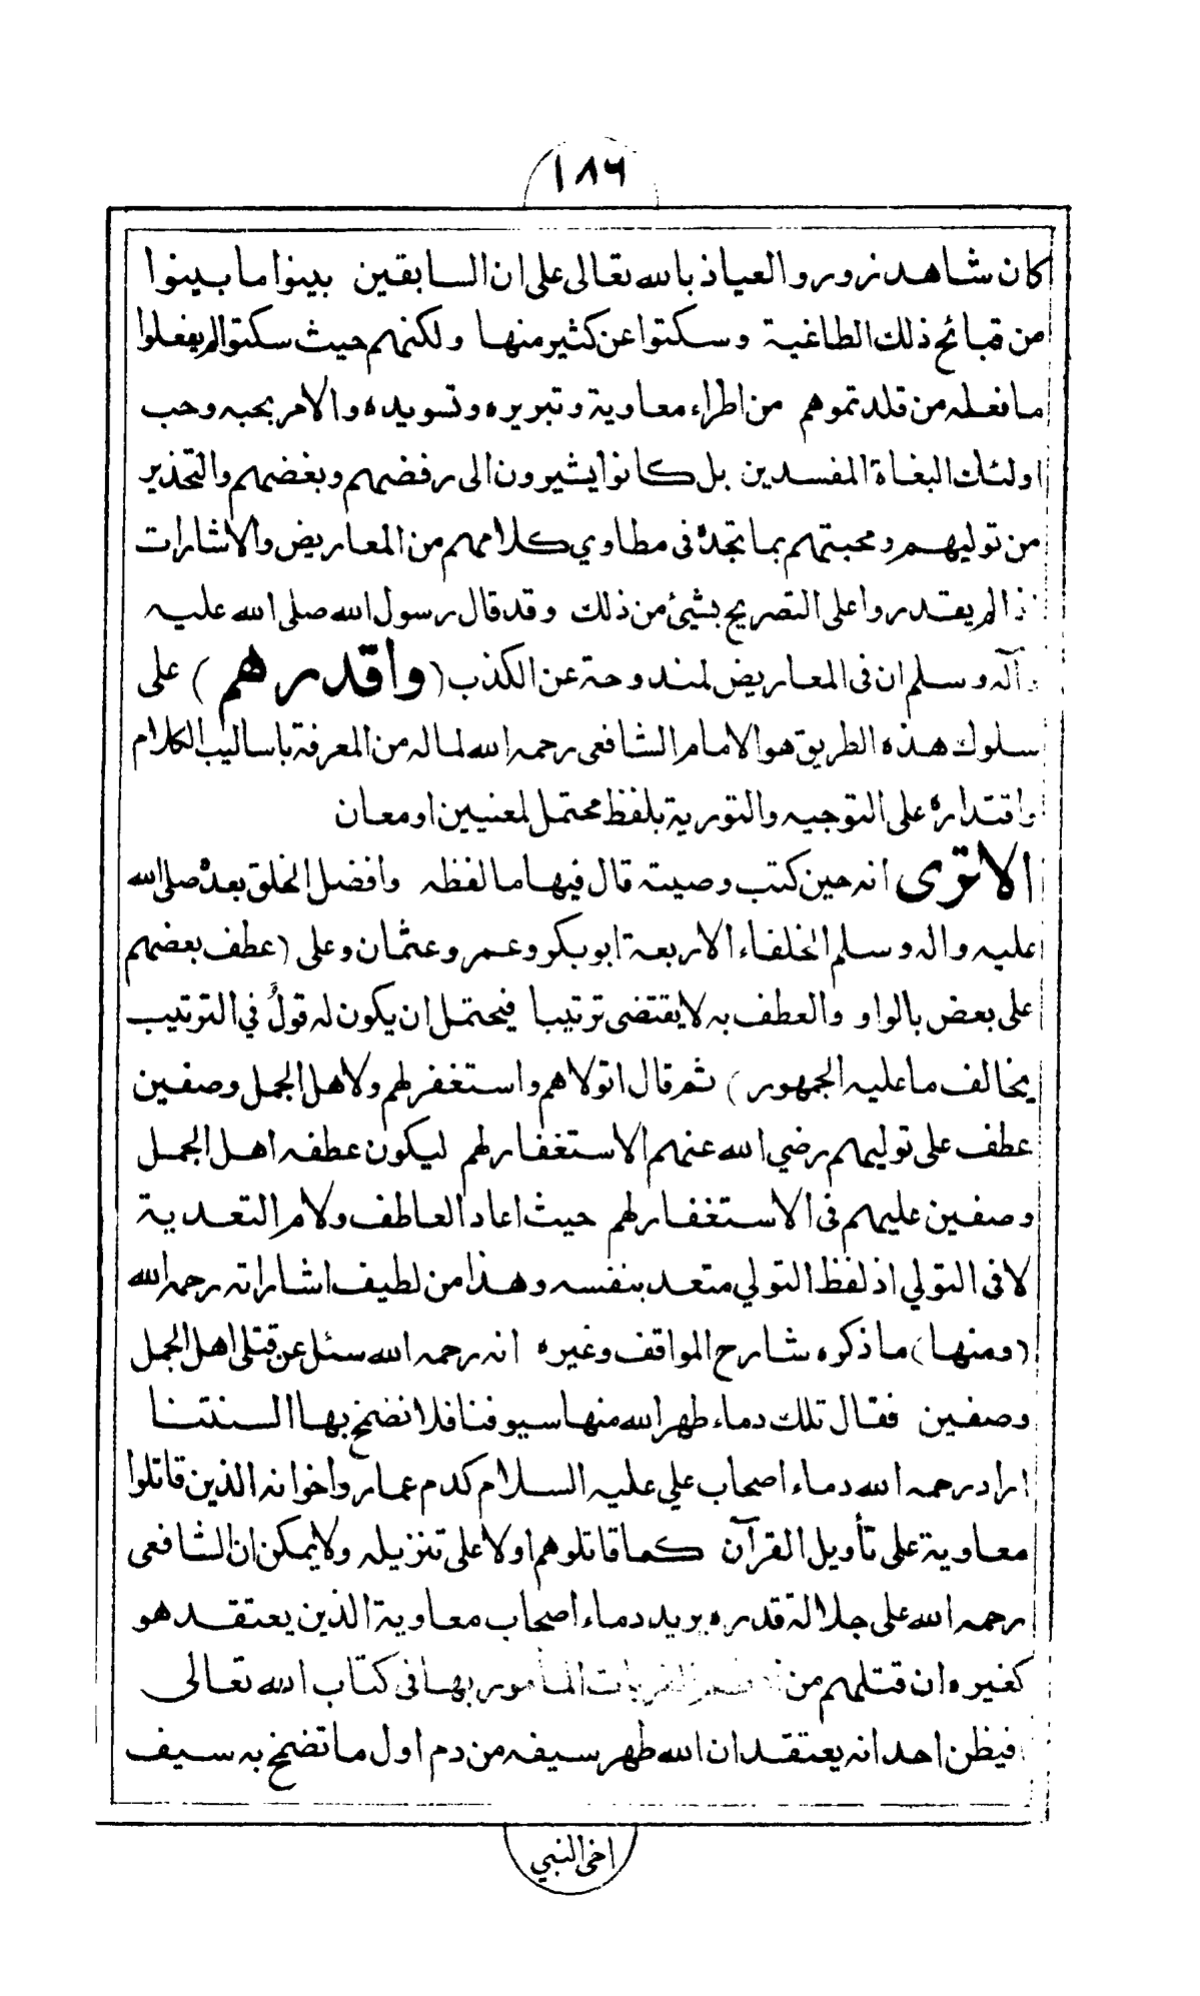 ١٨٦
كان شاهد زور والعياذ بالله تعالى على ان السابقين بينوا ما بينوا
من قبائح ذلك الطاغية وسكتوا عن كثير منها ولكنهم حيث سكتوا لم يفعلوا
ما فعله من قلدتموهم من اطراء معاوية وتبريره وتسويده والامر بحبه وحب
اولئك البغاة المفسدين بل كانوا يشيرون الى رفضهم وبغضهم والتحذير
من توليهم ومحبتهم بما تجده في مطاوي كلامهم من المعاريض والاشارات
اذا لم يقتدروا على التصريح بشيئ من ذلك وقد قال رسول الله صلى الله عليه
وآله وسلم ان في المعاريض لمندوحة عن الكذب (واقدرهم) على
سلوك هذه الطريق هو الامام الشافعي رحمه الله لما له من المعرفة باساليب الكلام
واقتداره على التوجيه والتورية بلفظ محتمل لمعنيين او معان
الا ترى انه حين كتب وصيته قال فيها ما لفظه وافضل الخلق بعده صلى الله
عليه واله وسلم الخلفاء الاربعة ابو بكر وعمر وعثمان وعلى (عطف بعضهم
على بعض بالواو والعطف به لا يقتضي ترتيبا فيحتمل ان يكون له قولٌ في الترتيب
يخالف ما عليه الجمهور) ثم قال اتولاهم واستغفر لهم ولاهل الجمل وصفين
عطف على توليهم رضي الله عنهم الاستغفار لهم ليكون عطفه اهل الجمل
وصفين عليهم في الاستغفار لهم حيث اعاد العاطف ولام التعدية
لا في التولي اذ لفظ التولي متعد بنفسه وهذا من لطيف اشاراته رحمه الله
(ومنها) ما ذكره شارح المواقف وغيره انه رحمه الله سئل عن قتلى اهل الجمل
وصفين فقال تلك دماء طهر الله منها سيوفنا فلا نضمخ بها السنتنا
اراد رحمه الله دماء اصحاب علي عليه السلام كدم عمار واخوانه الذين قاتلوا
معاوية على تأويل القرآن كما قاتلوهم اولا على تنزيله ولا يمكن ان الشافعي
رحمه الله على جلالة قدره يريد دماء اصحاب معاوية الذين يعتقد هو
كغيره ان قتلهم من القربات المأمور بها في كتاب الله تعالى
افيظن احد انه يعتقد ان الله طهر سيفه من دم اول ما تضمخ به سيف
اخى النبي